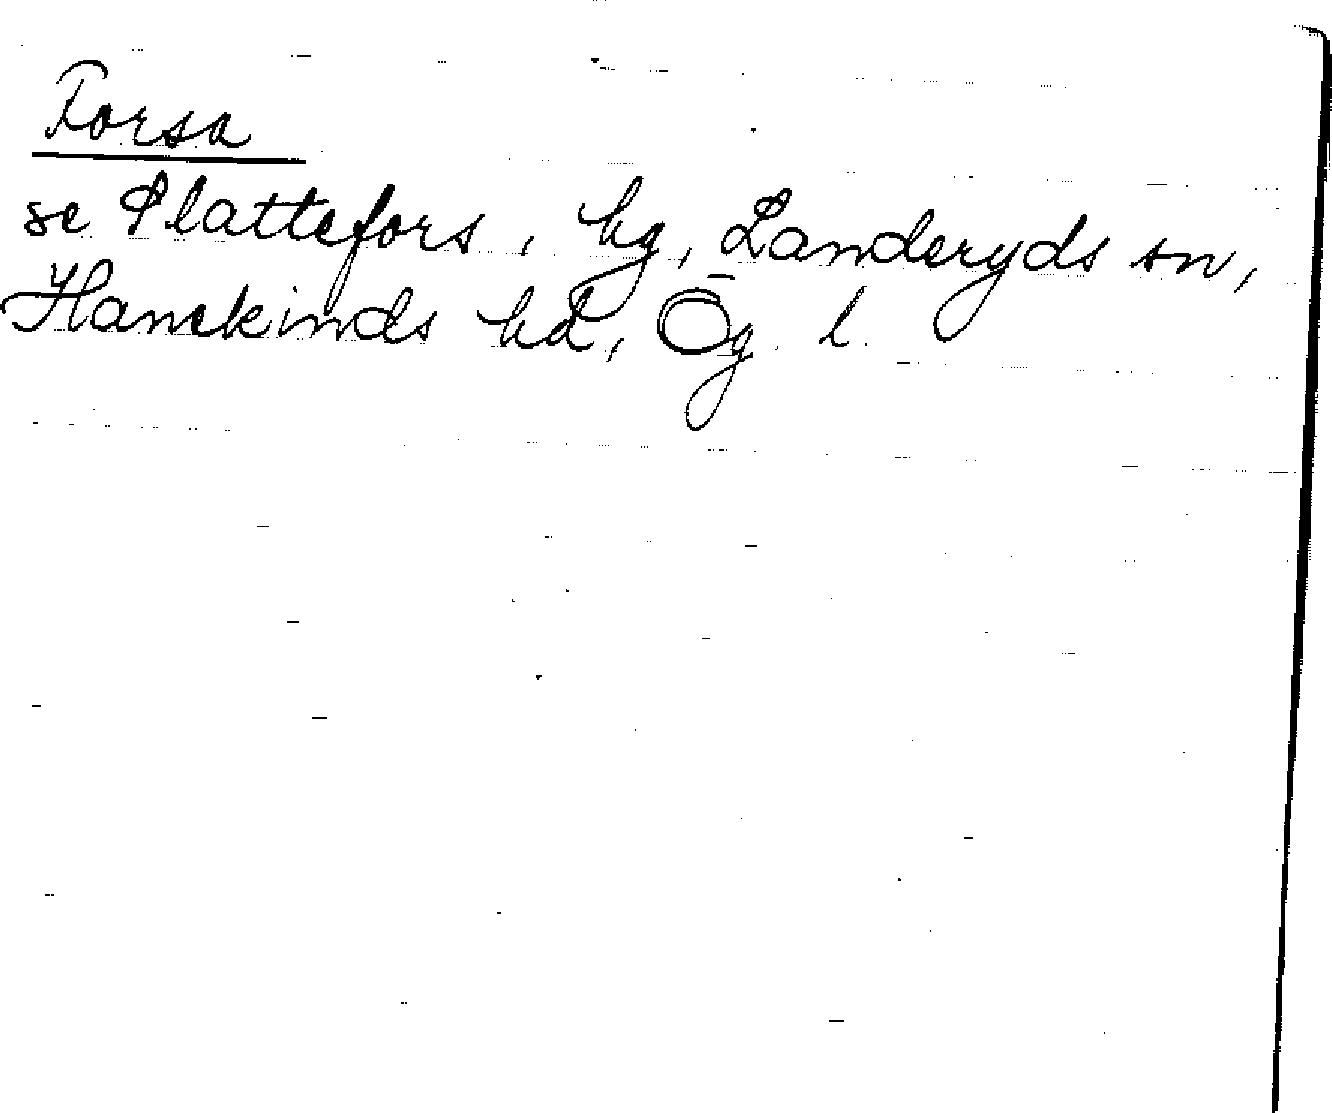 Forsa
se Plattefors, hg, Landeryds sn,
Hanekinds hd, Ög. l.